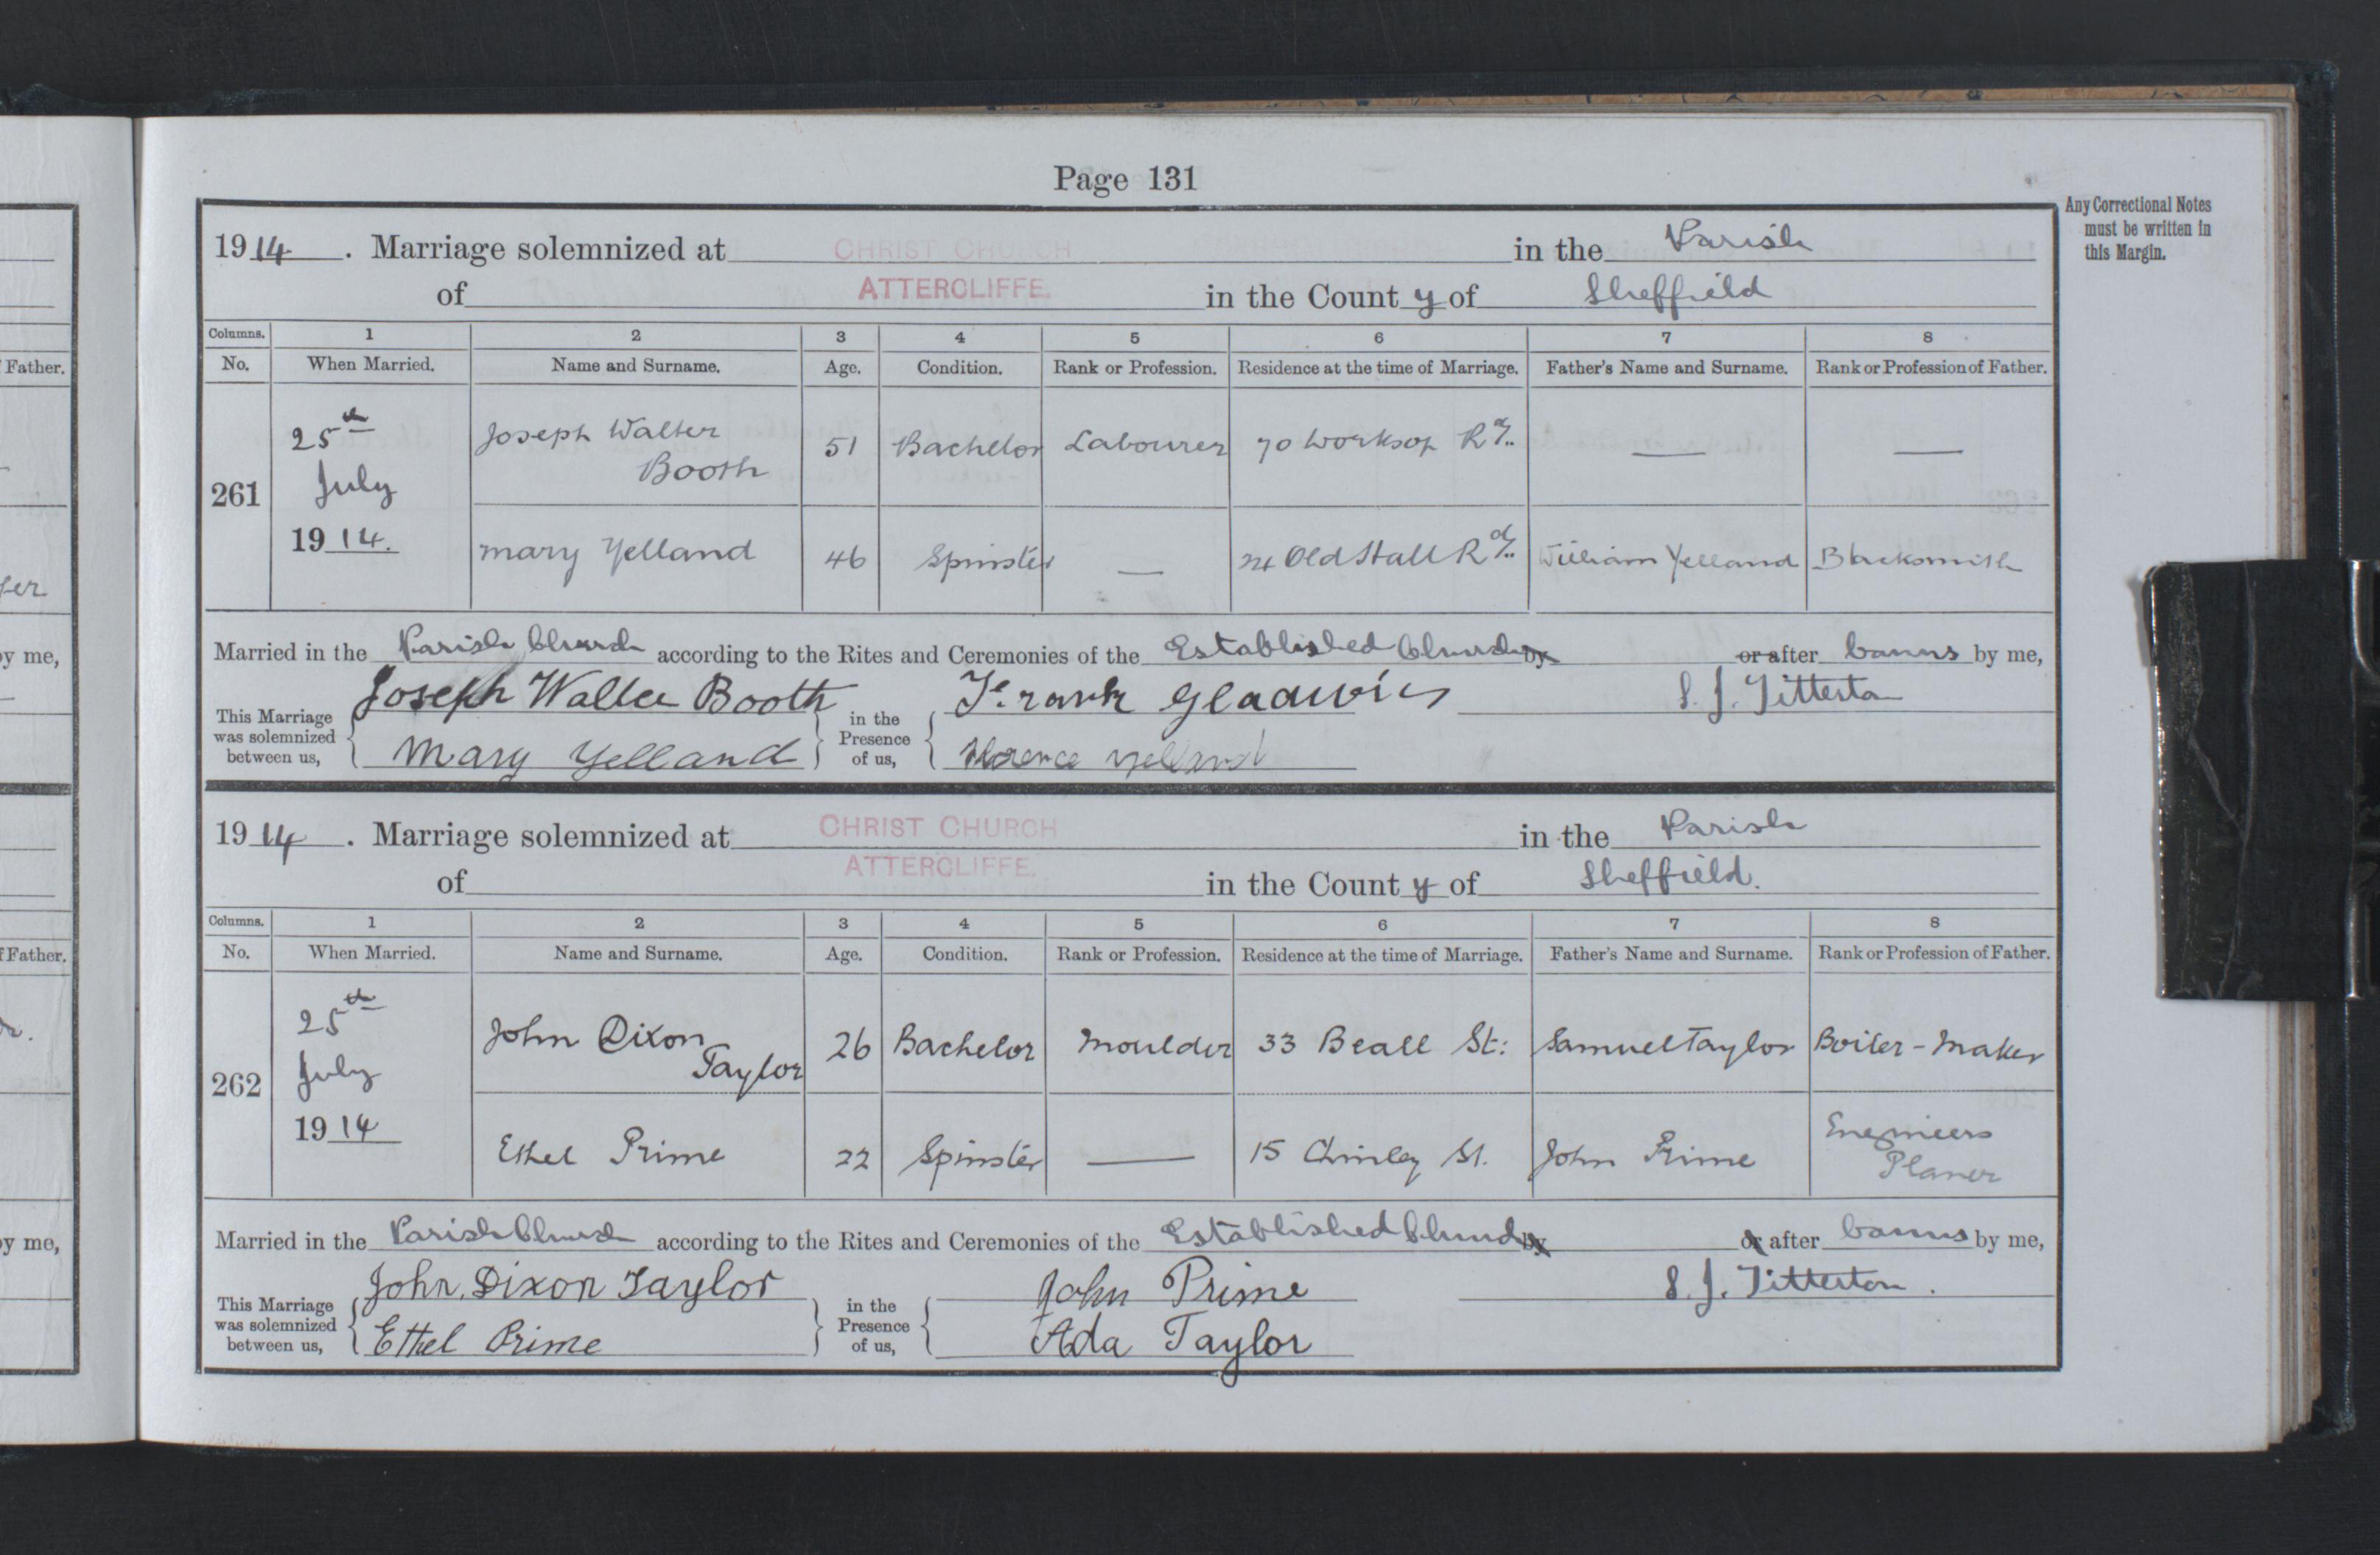 Page 131
Any Correctional Notes
must be written in
this Margin.
1914. Marriage solemnized at CHRIST CHURCH in the Parish
of ATTERCLIFFE. in the County of Sheffield
Columns. 1 2 3 4 5 6 7 8
No. When Married. Name and Surname. Age. Condition. Rank or Profession. Residence at the time of Marriage. Father's Name and Surname. Rank or Profession of Father.
261 25th July 1914. Joseph Walter Booth 51 Bachelor Labourer 70 Worksop Rd. — —
Mary Yelland 46 Spinster — Old Hall Rd. William Yelland Blacksmith
Married in the Parish Church according to the Rites and Ceremonies of the Established Church by or after banns by me,
This Marriage was solemnized between us, Joseph Walter Booth in the Presence of us, Frank Gladwin S. J. Titterton
Mary Yelland Florence Yelland
1914. Marriage solemnized at CHRIST CHURCH in the Parish
of ATTERCLIFFE. in the County of Sheffield.
Columns. 1 2 3 4 5 6 7 8
No. When Married. Name and Surname. Age. Condition. Rank or Profession. Residence at the time of Marriage. Father's Name and Surname. Rank or Profession of Father.
262 25th July 1914 John Dixon Taylor 26 Bachelor Moulder 33 Beall St: Samuel Taylor Boiler-Maker
Ethel Prime 22 Spinster — 15 Chinley St. John Prime Engineers Planer
Married in the Parish Church according to the Rites and Ceremonies of the Established Church by or after banns by me,
This Marriage was solemnized between us, John Dixon Taylor in the Presence of us, John Prime S. J. Titterton.
Ethel Prime Ada Taylor
Father.
by me,
f Father.
by me,